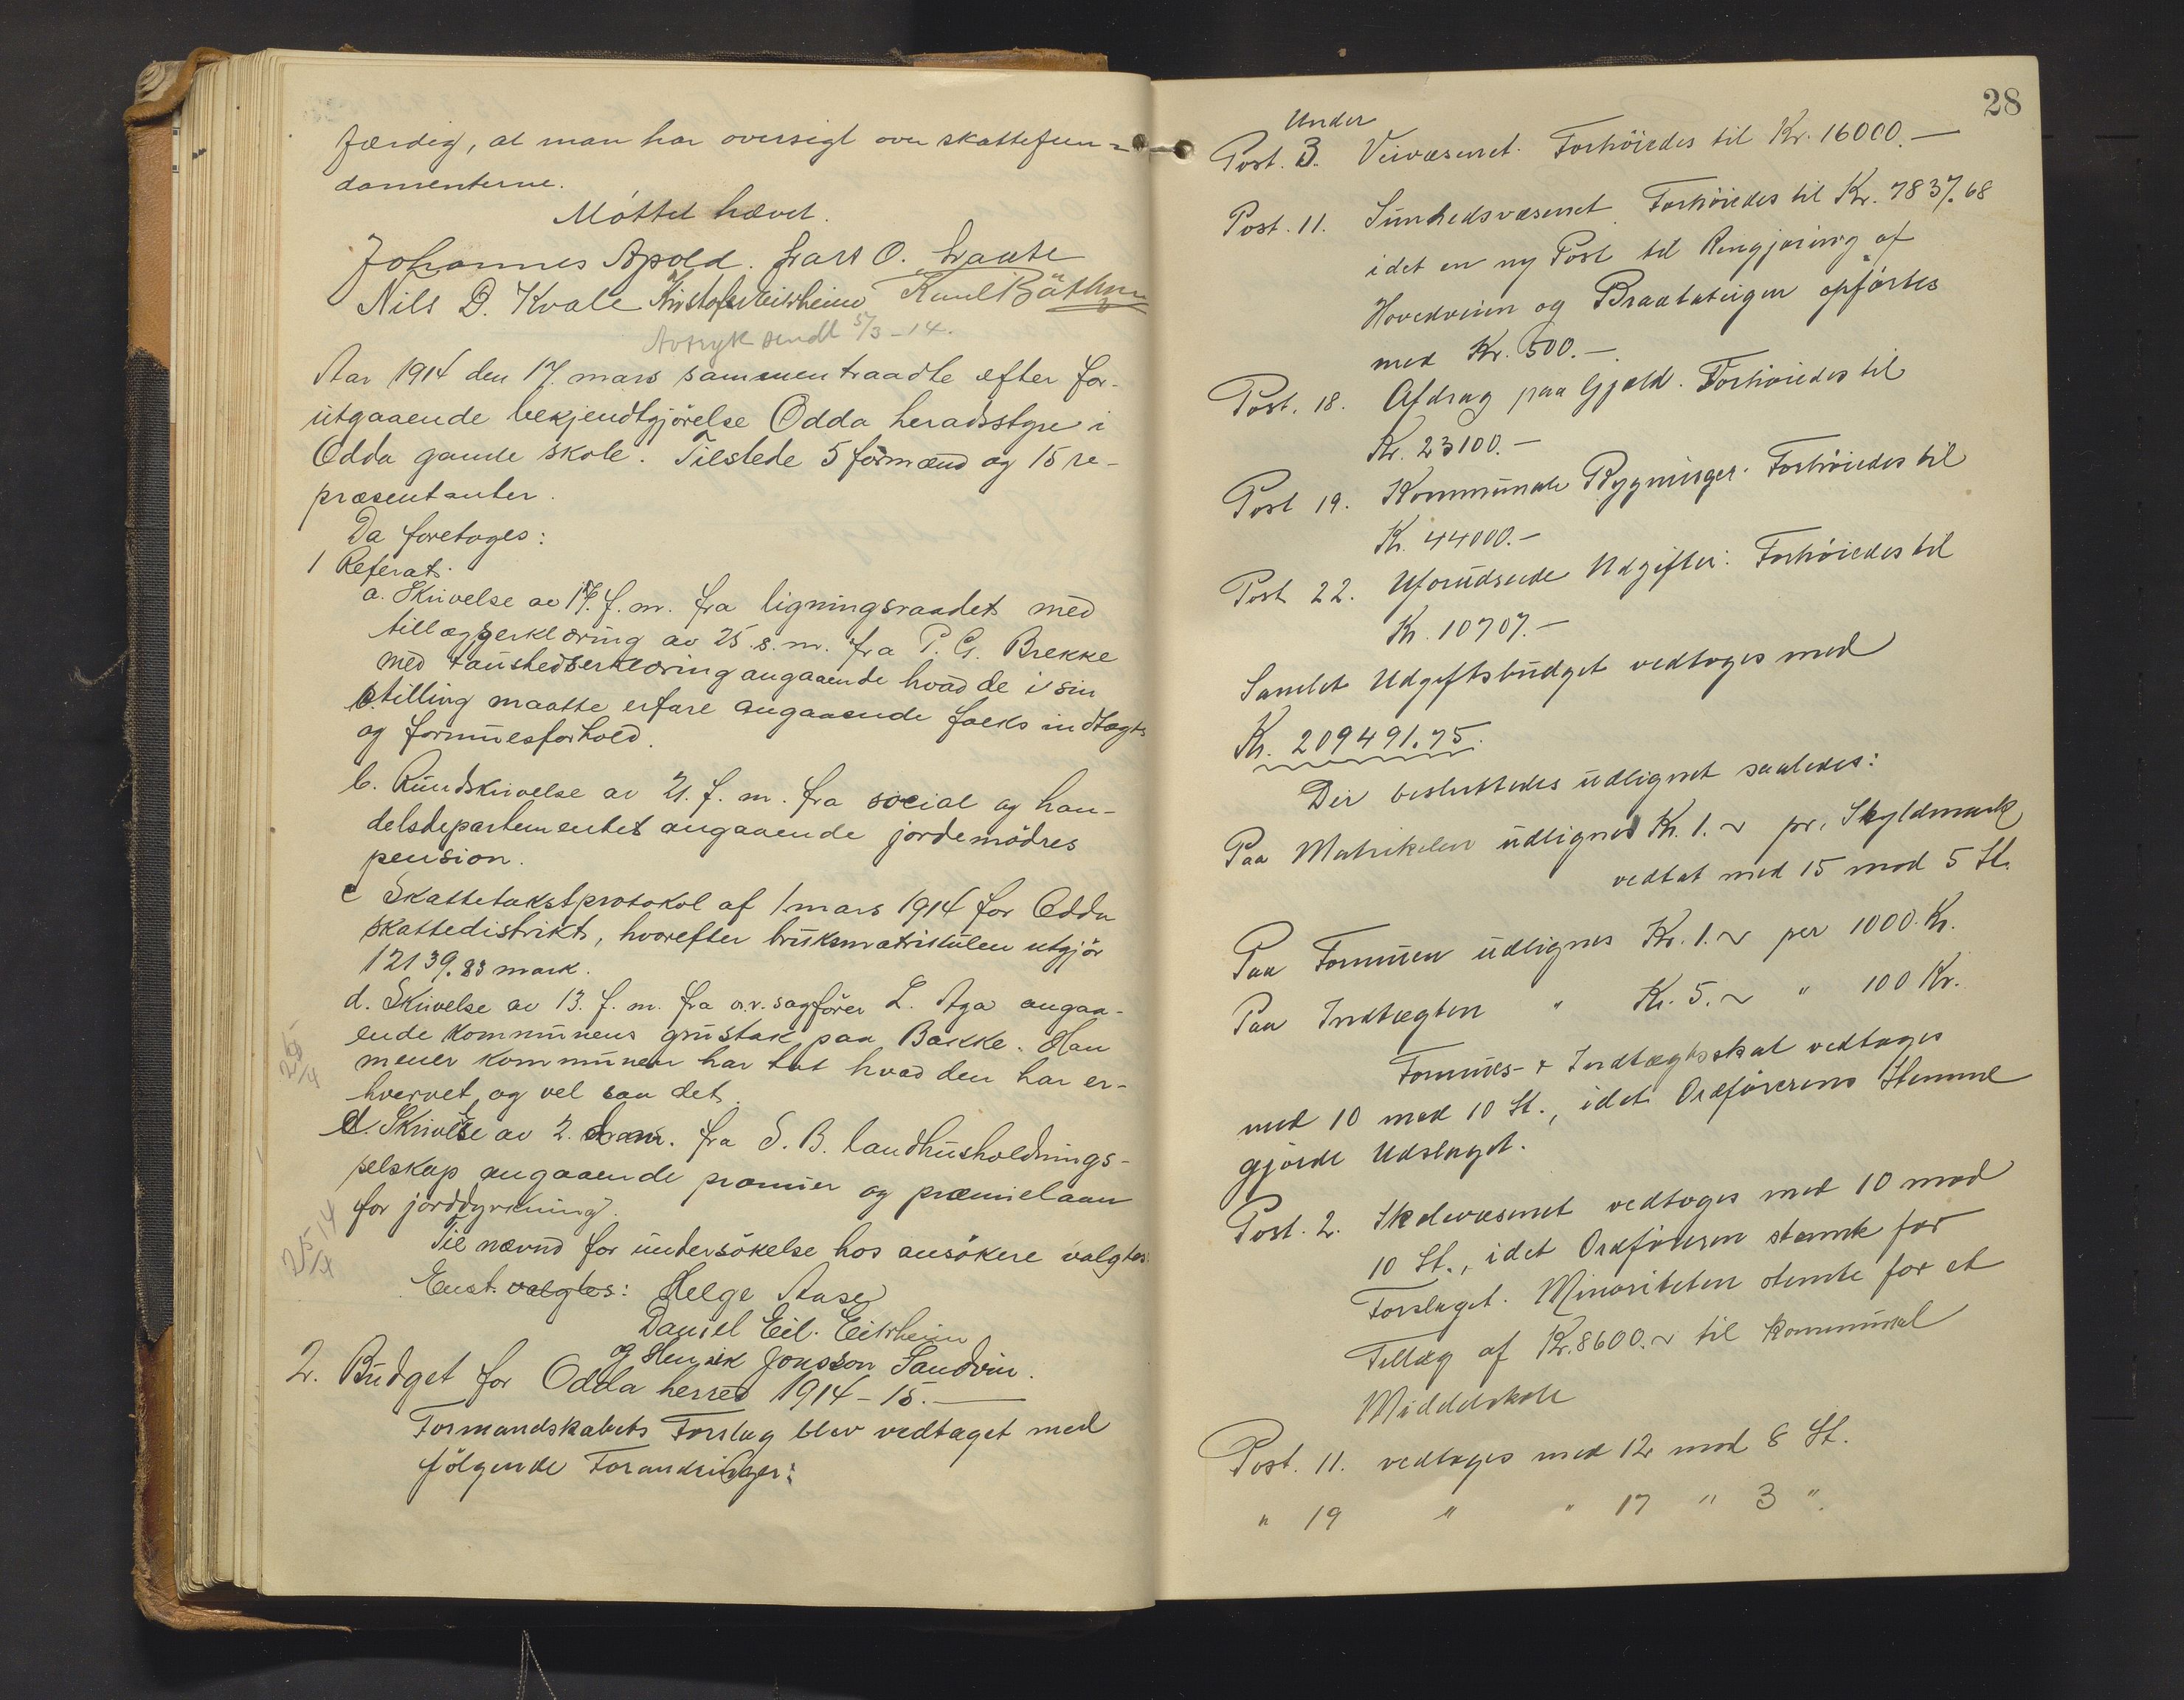 færdig, at man har oversigt over skattefun=
damenterne.
Møttet hævet.
Johannes Apold. Lars O.
Nils D. Kvale Kristofer Eitrheim
Avtryk sendt 5/3-14.
Aar 1914 den 17. mars sammentraadte efter for-
utgaaende bekjendtgjörelse Odda heradsstyre i
Odda gamle skole. Tilstede 5 formænd og 15 re-
præsentanter.
Da foretoges:
1 Referat.
a. Skrivelse av 17. f. m. fra ligningsraadet med
tillægserklæring av 25. s. m. fra P. G. Brekke
med taushedserklæring angaaende hvad de i sin
stilling maatte erfare angaaende folks indtægts
og formuesforhold.
b. Rundskrivelse av 21. f. m. fra social og han-
delsdepartementet angaaende jordemödres
pension.
c Skattetakstprotokol af 1 mars 1914 for Odda
skattedistrikt, hvorefter bruksmatrikulen utgjör
12139.83 mark.
d. Skrivelse av 13. f. m. fra o.r.sagförer L. Aga angaa-
ende kommunens grustak paa Bakke. Han
mener kommunen har tat hvad den har er-
hvervet, og vel saa det.
d. Skrivelse av 2. fra S. B. landhusholdnings-
selskap angaaende præmier og præmielaan
for jorddyrkning.
Til nævnd for undersökelse hos ansökere valgtes:
Enst. valgtes: Helge Aase
Daniel Eil. Eitrheim
og Henrik Jonsson Sandvin.
2. Budget for Odda herred 1914-15.
Formandskabets Forslag blev vedtaget med
følgende Forandringer:
28
Under
Post. 3. Veivæsenet. Forhöiedes til Kr. 16000.-
Post. 11. Sundhedsvæsenet Forhöiedes til Kr. 7837.68
idet en ny Post til Rengjöring af
Hovedveien og Braatateigen opförtes
med Kr. 500.-
Post. 18. Afdrag paa Gjæld. Forhöiedes til
Kr. 23100.-
Post 19. Kommunale Bygninger. Forhöiedes til
Kr. 44000.-
Post 22. Uforudseede Udgifter: Forhöiedes til
Kr. 10707.-
Samlet Udgiftsbudget vedtoges med
Kr. 209491.75.
Der besluttedes udlignet saaledes:
Paa Matrikelen udlignes Kr. 1.~ pr. Skyldmark
vedtat med 15 mod 5 St.
Paa Formuen udlignes Kr. 1.~ per 1000 Kr.
Paa Indtægten " Kr. 5.~ " 100 Kr.
Formues- & Indtægtsskat vedtoges
med 10 mod 10 St., idet Ordförerens Stemme
gjorde Udslaget.
Post. 2. Skolevæsenet vedtoges med 10 mod
10 St., idet Ordföreren stemte for
Forslaget. Minoriteten stemte for et
Tillæg af Kr. 8600.~ til kommunal
Middelskole
Post. 11. vedtoges med 12 mod 8 St.
" 19 " " 17 " 3 ".